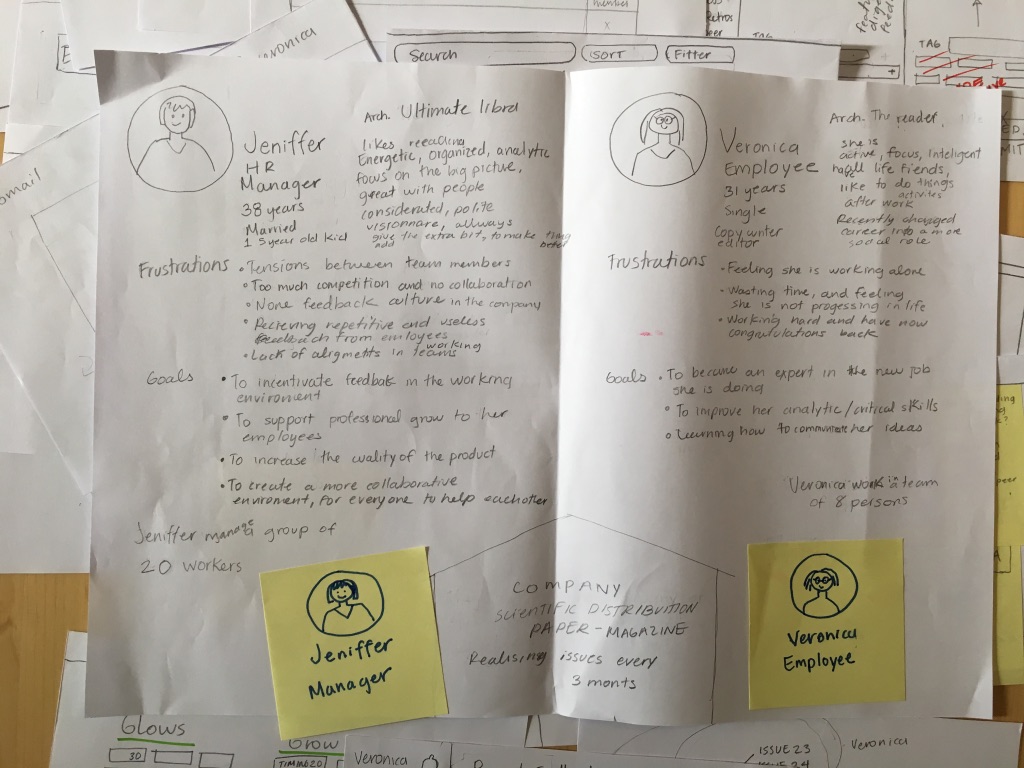 member
x
Retros
TAG
Veronica
Search
SORT
Fitter
TAG
omail
Arch. Ultimate libra
Jeniffer
HR
Manager
38 years
Married
1 5year old kid
likes reeading
Energetic, organized, analytic
focus on the big picture,
great with people
considerated, polite
visionnare, allways
give the extra bit, to make thing
add better
Frustrations
• Tensions between team members
• Too much competition and no collaboration
• None feedback culture in the company
• Recieving repetitive and useless
feedback from employees
• Lack of aligments in working teams
Goals
• To incentivate feedbak in the working
enviroment
• To support professional grow to her
employees
• To increase the cuality of the product
• To create a more collaborative
enviroment, for everyone to help eachother
Jeniffer manage a group of
20 workers
Jeniffer
Manager
Arch. The reader,
Veronica
Employee
31 years
Single
Copy writer
editor
she is
active, focus, inteligent
life fiends,
like to do things
activites
after work
Recently changed
career into a more
social role
Frustrations
• Feeling she is working alone
• Wasting time, and feeling
she is not progessing in life
• Working hard and have now
congratulations back
Goals
• To became an expert in the new job
she is doing
• To improve her analytic/critical skills
• Learning how to communicate her ideas
Veronica work in a team
of 8 persons
COMPANY
SCIENTIFIC DISTRIBUITION
PAPER-MAGAZINE
Realising issues every
3 monts
Veronica
Employee
Glows
30
Grow
TIMING 20
Veronica
ISSUE 23
ISSUE 24
Veronica